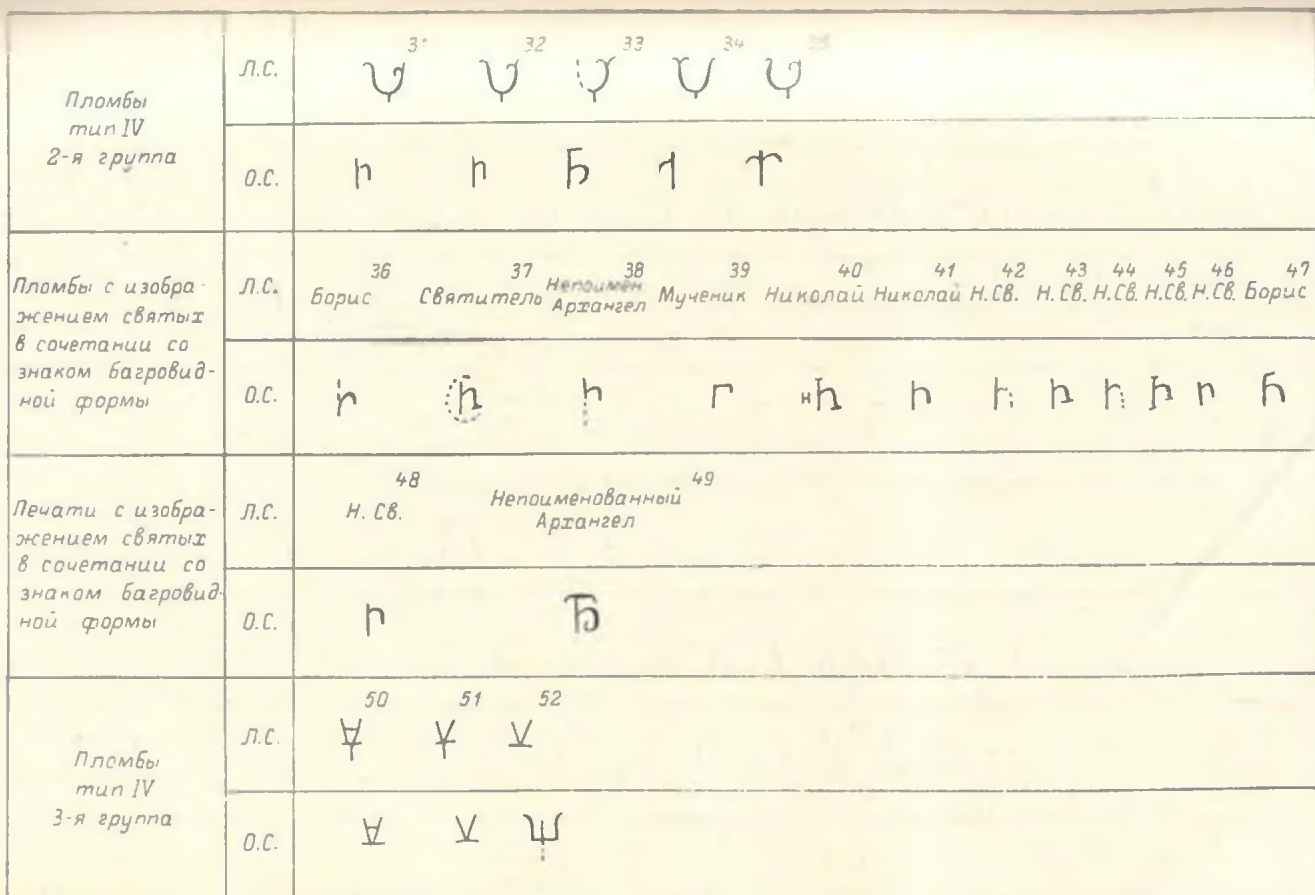 Пломбы
тип IV
2-я группа
Л.С.
31 32 33 34 35
О.С.
Пломбы с изобра-
жением святых
в сочетании со
знаком багровид-
ной формы
Л.С.
36 37 38 39 40 41 42 43 44 45 46 47
Борис Святитель Непоимен. Архангел Мученик Николай Николай Н.Св. Н.Св. Н.Св. Н.Св. Н.Св. Борис
О.С.
Печати с изобра-
жением святых
в сочетании со
знаком багровид-
ной формы
Л.С.
48 49
Н. Св. Непоименованный
Архангел
О.С.
Пломбы
тип IV
3-я группа
Л.С.
50 51 52
О.С.